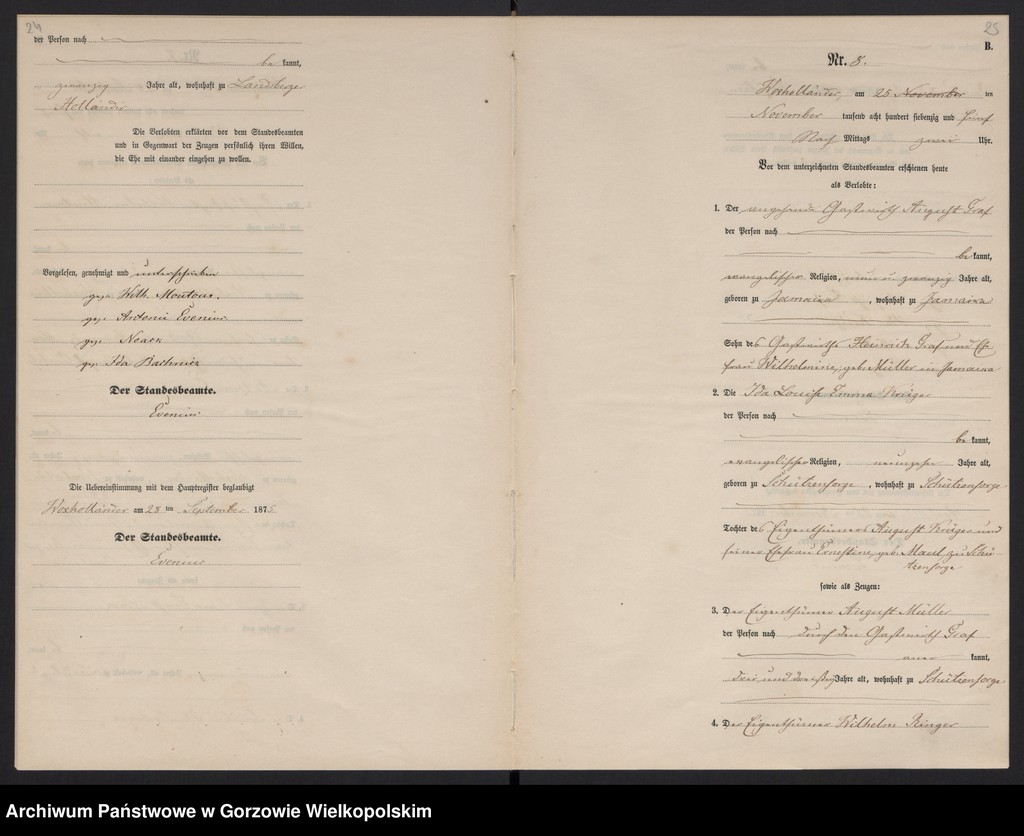 24
der Person nach
be kannt,
zwanzig Jahre alt, wohnhaft zu Landsberger
Holländer
Die Verlobten erklärten vor dem Standesbeamten
und in Gegenwart der Zeugen persönlich ihren Willen,
die Ehe mit einander eingehen zu wollen.
Vorgelesen, genehmigt und unterschrieben
gez. Wilh. Moutoux.
gez. Evenius
gez. Noack
gez. Ida
Der Standesbeamte.
Evenius
Die Uebereinstimmung mit dem Hauptregister beglaubigt
Woxholländer am 28 ten September 1875
Der Standesbeamte.
Evenius
25
B.
Nr. 8.
Woxholländer, am 25 November ten
November tausend acht hundert siebenzig und fünf
Nach Mittags zwei Uhr.
Vor dem unterzeichneten Standesbeamten erschienen heute
als Verlobte:
1. Der angehende Gastwirth August Graf
der Person nach
be kannt,
evangelischer Religion, neun u zwanzig Jahre alt,
geboren zu Jamaica, wohnhaft zu Jamaica
Sohn des Gastwirths Heinrich Graf und Ehe
frau Wilhelmine, geb. Müller in Jamaica
2. Die Ida Louise Emma Krüger
der Person nach
be kannt,
evangelischer Religion, neunzehn Jahre alt,
geboren zu Schützensorge, wohnhaft zu Schützensorge
Tochter des Eigenthümers August Krüger und
seiner Ehefrau Ernestine, geb. Maul zu Schü-
tzensorge
sowie als Zeugen:
3. Der Eigenthümer August Müller
der Person nach durch den Gastwirth Graf
aner kannt,
drei und dreißig Jahre alt, wohnhaft zu Schützensorge
4. Der Eigenthümer Wilhelm
Archiwum Państwowe w Gorzowie Wielkopolskim